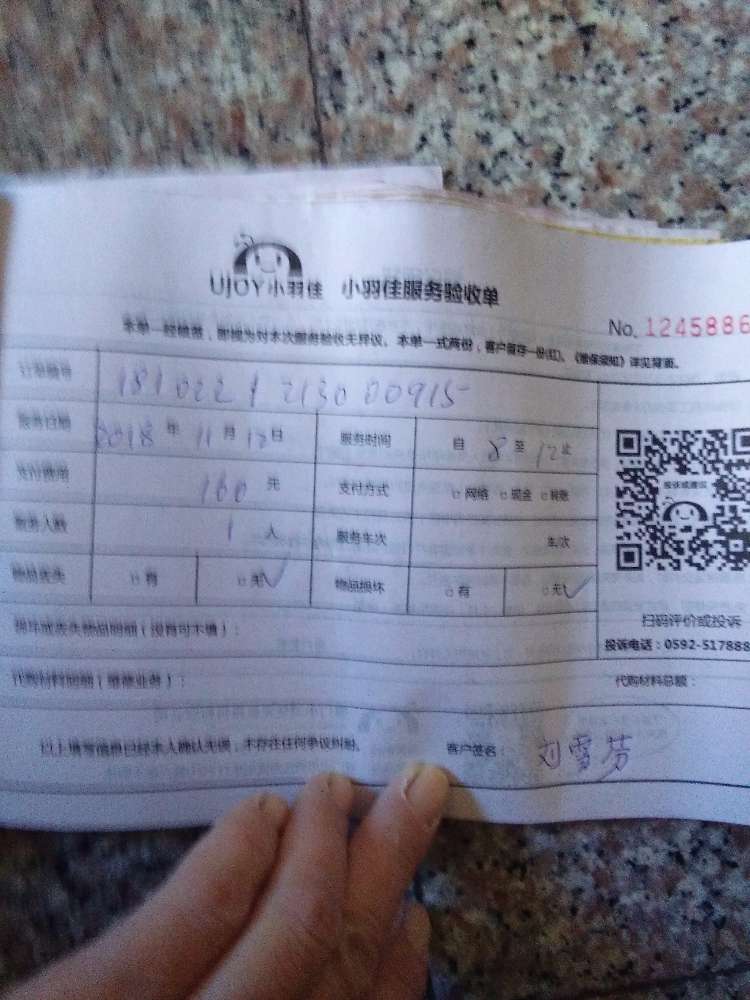 UJOY小羽佳 小羽佳服务验收单
No. 1245886
本单一经签署，即视为对本次服务验收无异议。本单一式两份，客户留存一份(红)。《维保须知》详见背面。
订单编号 181022121300915
服务日期 2018年11月12日 服务时间 自8至12止
支付费用 160元 支付方式 □网络 □现金 □转账
服务人数 1人 服务车次 车次
物品丢失 □有 □无✓ 物品损坏 □有 □无✓
扫码评价或投诉
投诉电话：0592-517888
损坏或丢失物品明细（没有可不填）：
代购材料明细（维修业务）： 代购材料总额：
以上填写信息已经本人确认无误，不存在任何争议纠纷。 客户签名： 刘雪芬